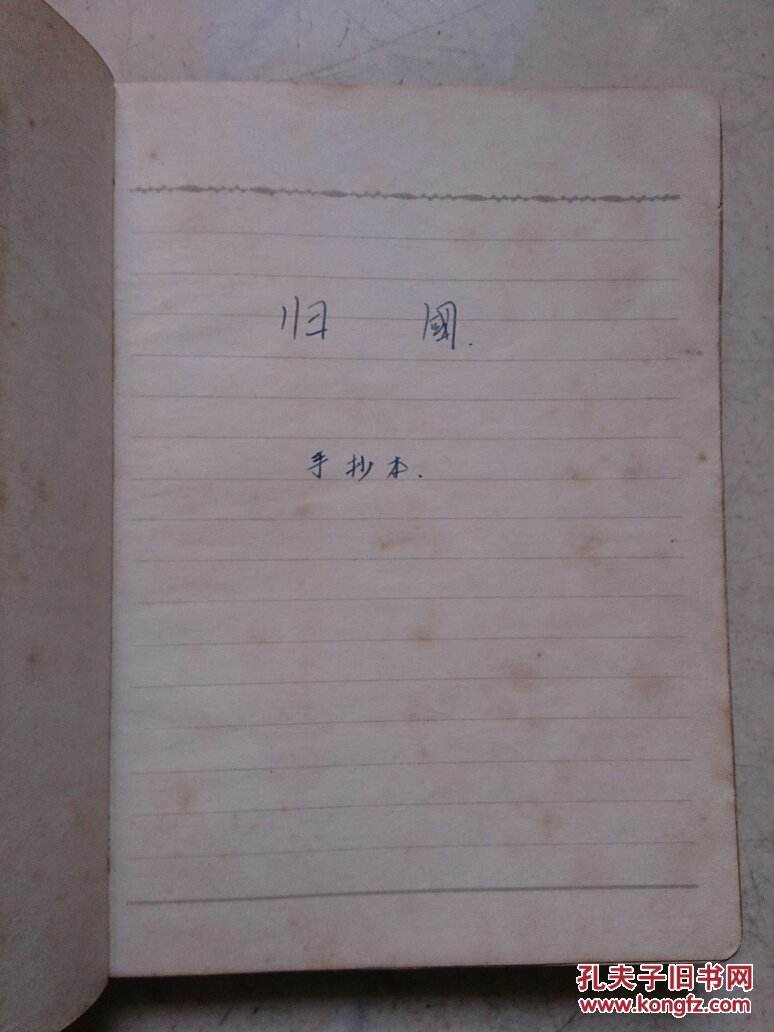 归 國.
手抄本.
孔夫子旧书网
www.kongfz.com